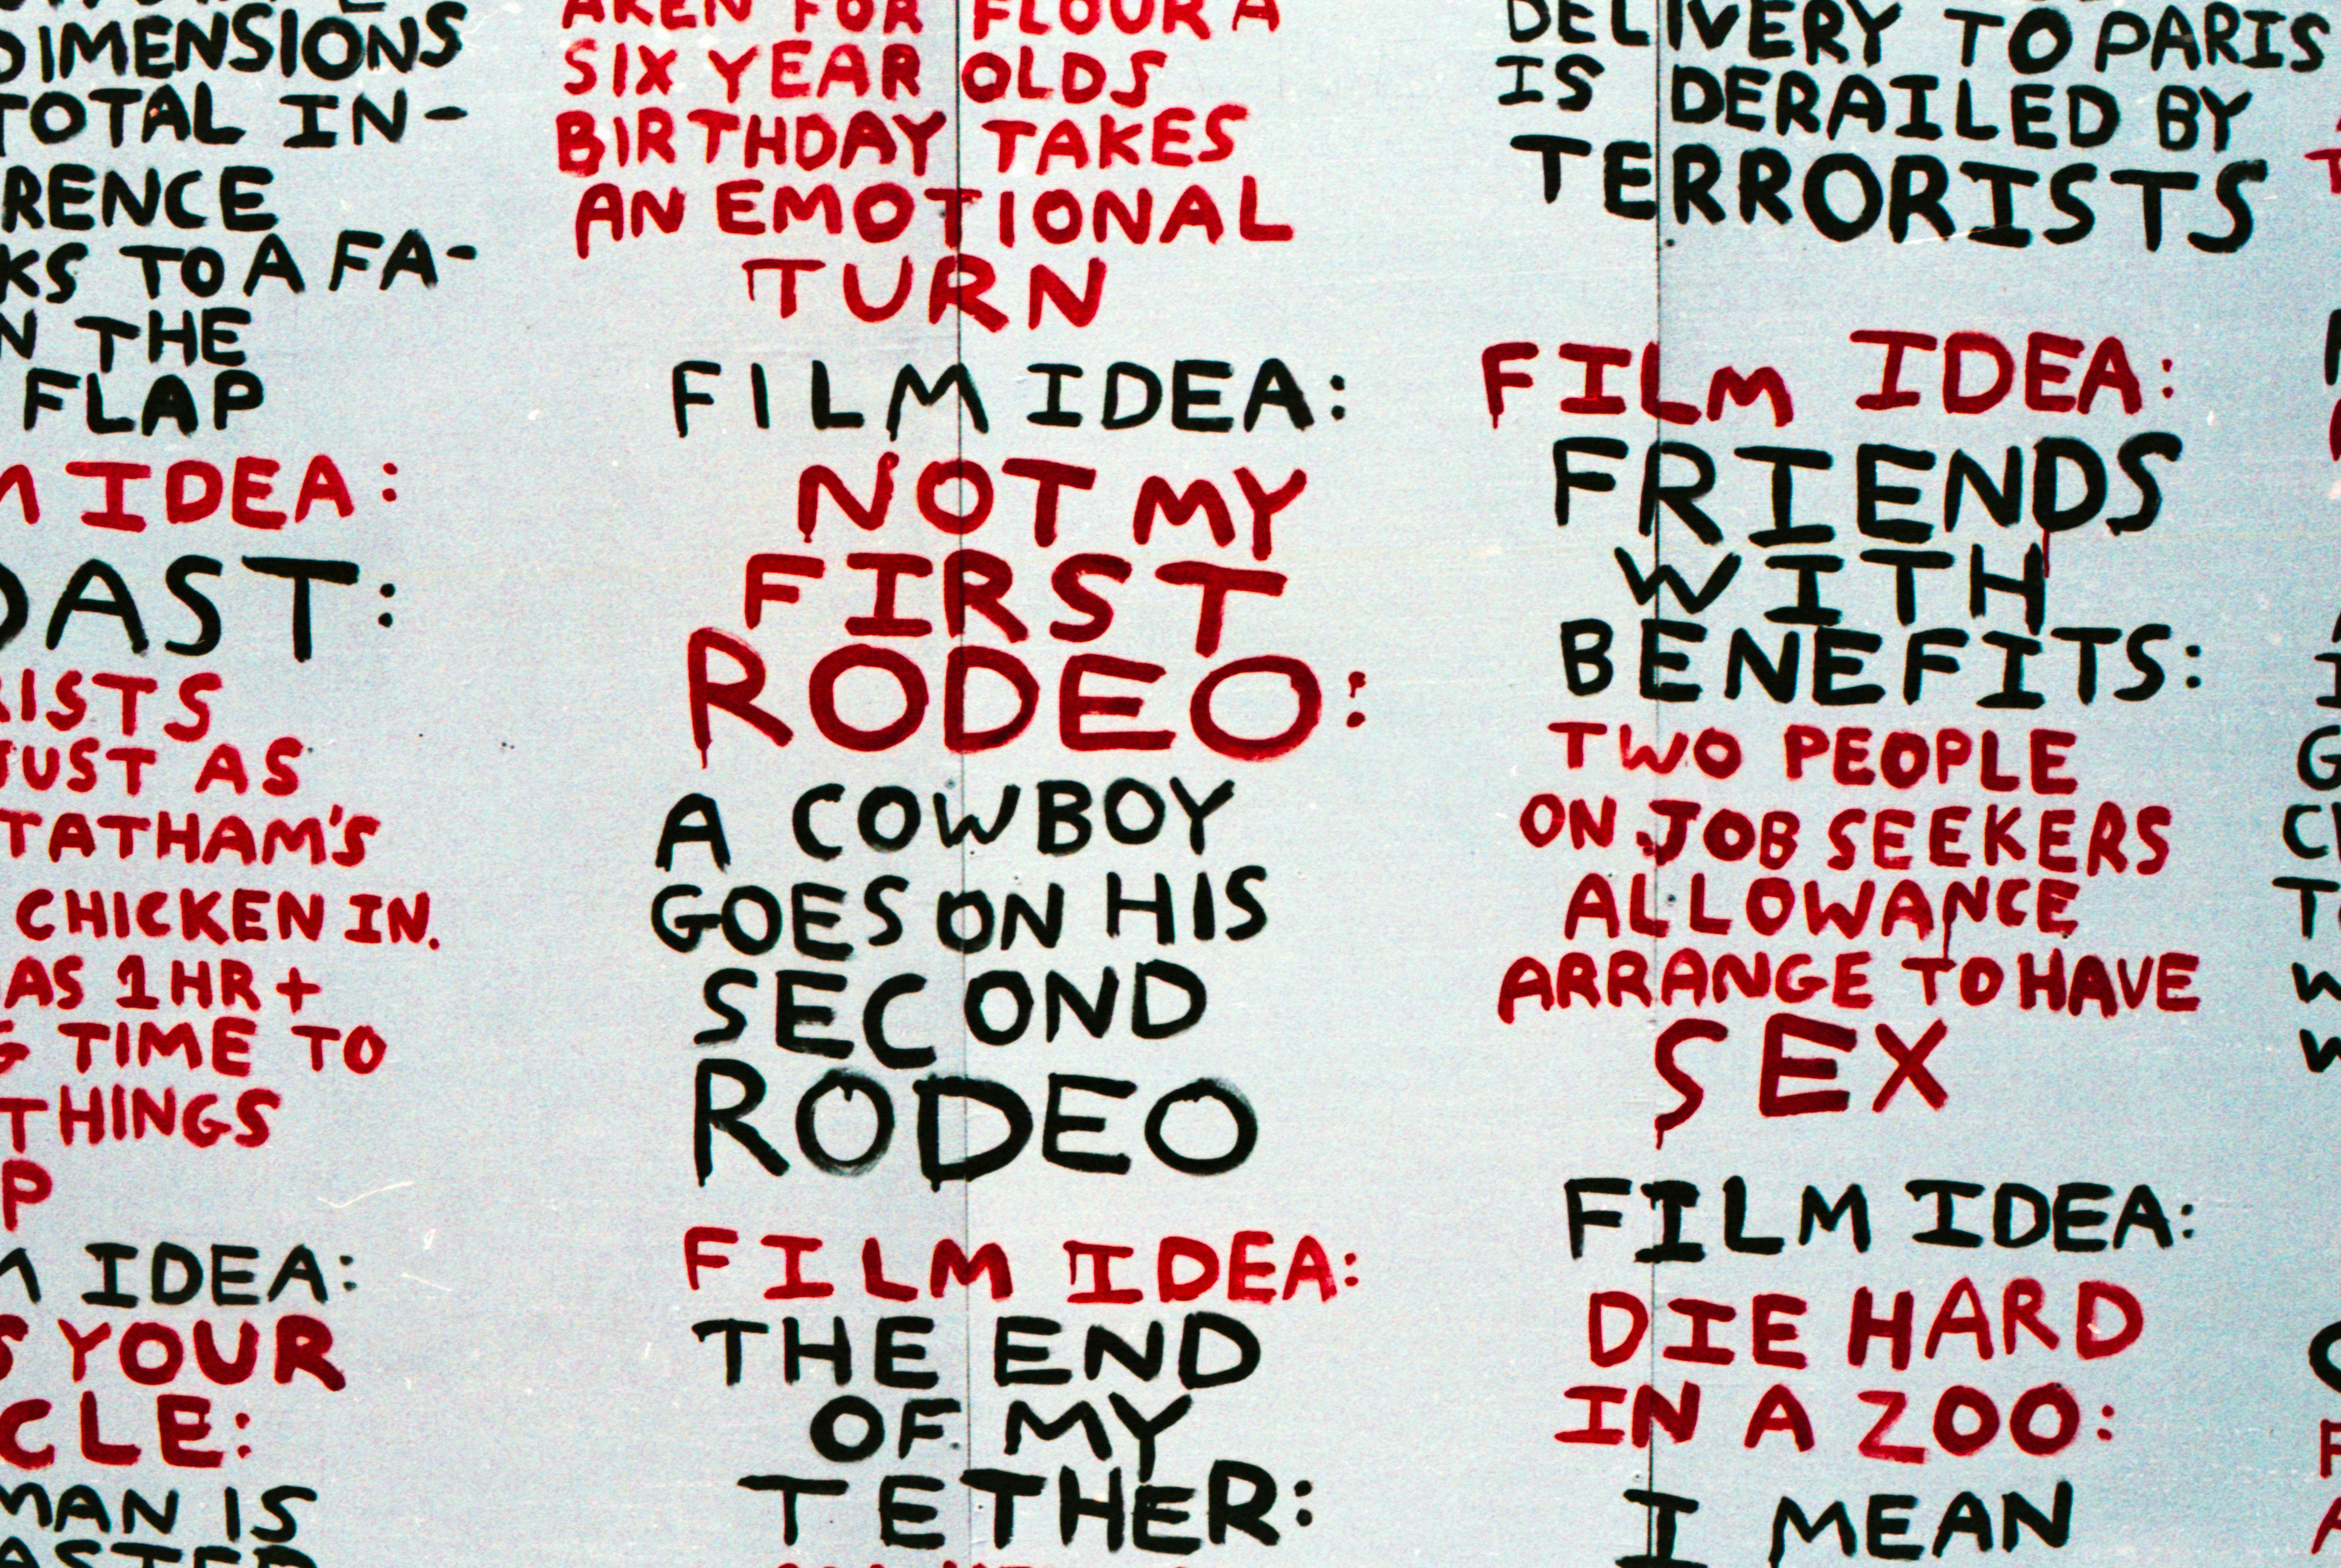 DIMENSIONS
TOTAL IN-
RENCE
KS TO A FA-
N THE
FLAP
M IDEA:
OAST:
RISTS
JUST AS
TATHAM'S
CHICKEN IN.
AS 1HR +
G TIME TO
THINGS
P
M IDEA:
S YOUR
CLE:
MAN IS
AKEN FOR FLOUR A
SIX YEAR OLDS
BIRTHDAY TAKES
AN EMOTIONAL
TURN
FILM IDEA:
NOT MY
FIRST
RODEO:
A COWBOY
GOES ON HIS
SECOND
RODEO
FILM IDEA:
THE END
OF MY
TETHER:
DELIVERY TO PARIS
IS DERAILED BY
TERRORISTS
FILM IDEA:
FRIENDS
WITH
BENEFITS:
TWO PEOPLE
ON JOB SEEKERS
ALLOWANCE
ARRANGE TO HAVE
SEX
FILM IDEA:
DIE HARD
IN A ZOO:
I MEAN